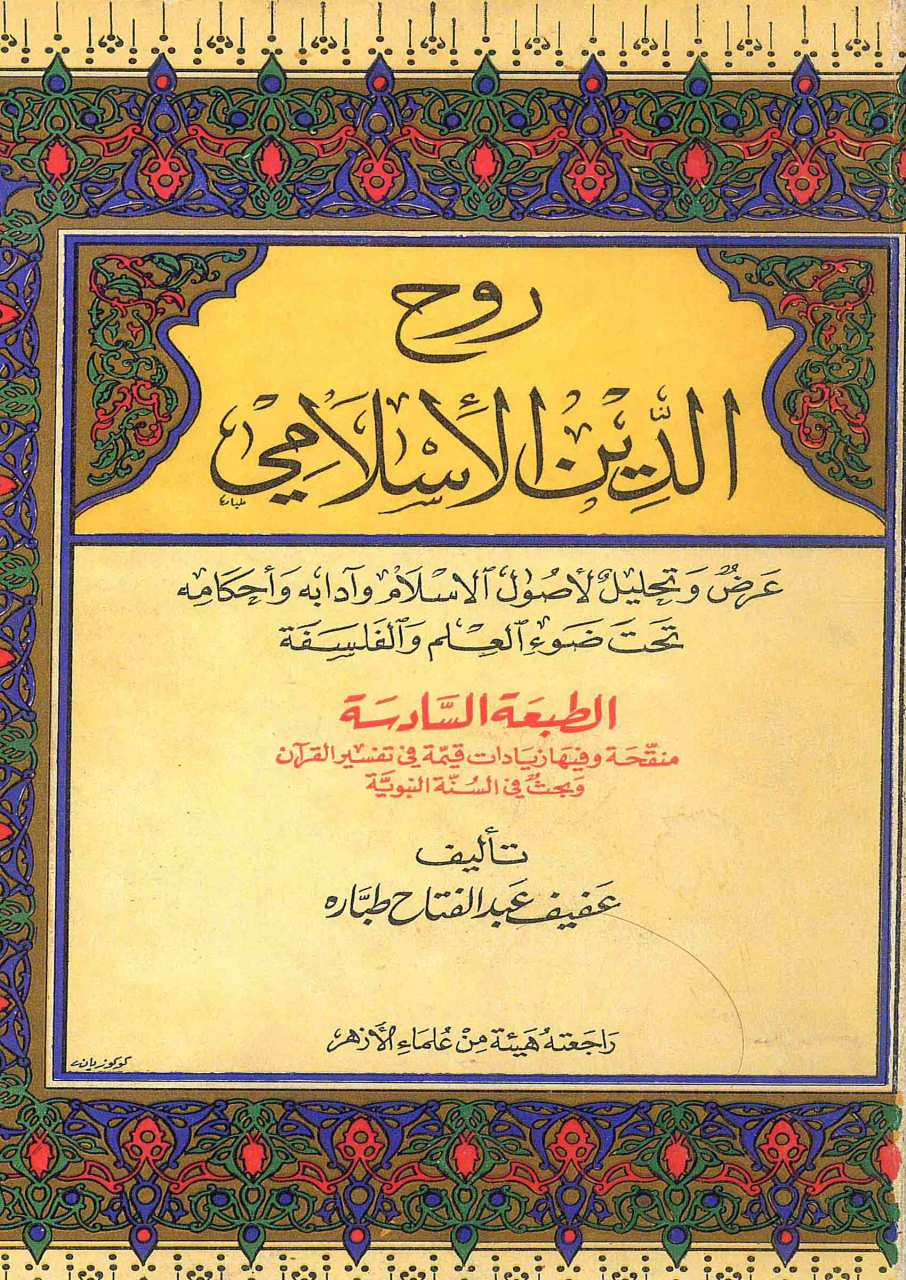 روح
الدِّين الإسْلَامِي
طباره
عَرضٌ وَتحليلٌ لأصُول الاسْلَام وَآدابه وَأحكامِه
تحَتَ ضَوءِ العِلم وَالفَلسَفَة
الطبعَة السَّادسَة
منقّحَة وفيهَا زيَادات قيمّة في تفسير القرآن
وَبحثٌ في السُنّة النبويَّة
تأليف
عَفيف عَبد الفتاح طبَّاره
رَاجَعتهُ هَيئة مِنْ عُلماءِ الأزهر